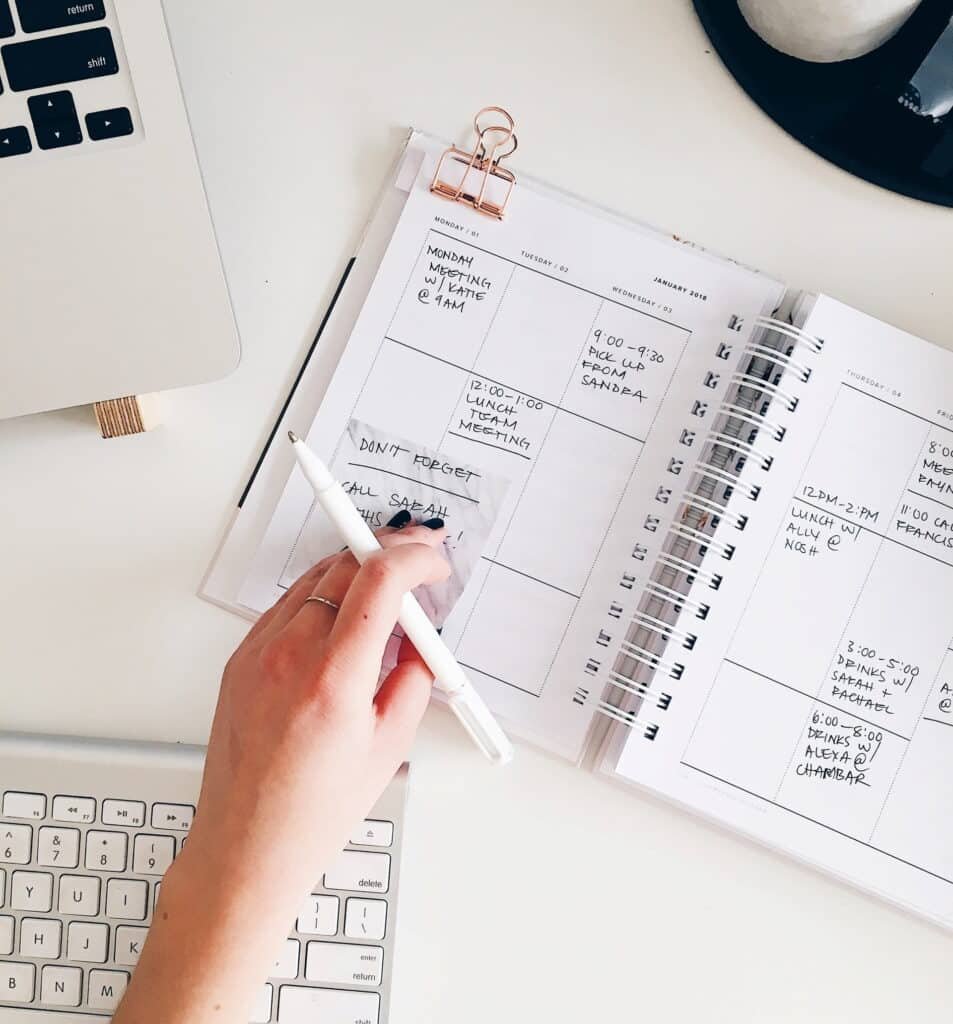 return
shift
MONDAY / 01
TUESDAY / 02
JANUARY 2018
WEDNESDAY / 03
MONDAY
MEETING
W/ KATIE
@ 9AM
9:00-9:30
PICK UP
FROM
SANDRA
12:00-1:00
LUNCH
TEAM
MEETING
DON'T FORGET
CALL SARAH
THURSDAY / 04
FRI
8:00
MEE
11:00 CAL
FRANCIS
12PM-2:PM
LUNCH W/
ALLY @
NOSH
3:00-5:00
DRINKS W/
SARAH +
RACHAEL
A
@
6:00-8:00
DRINKS W/
ALEXA @
CHAMBAR
F6
F7
F8
F9
^
6
&
7
*
8
(
9
Y
U
I
delete
H
J
K
}
]
|
\
enter
return
B
N
M
shift